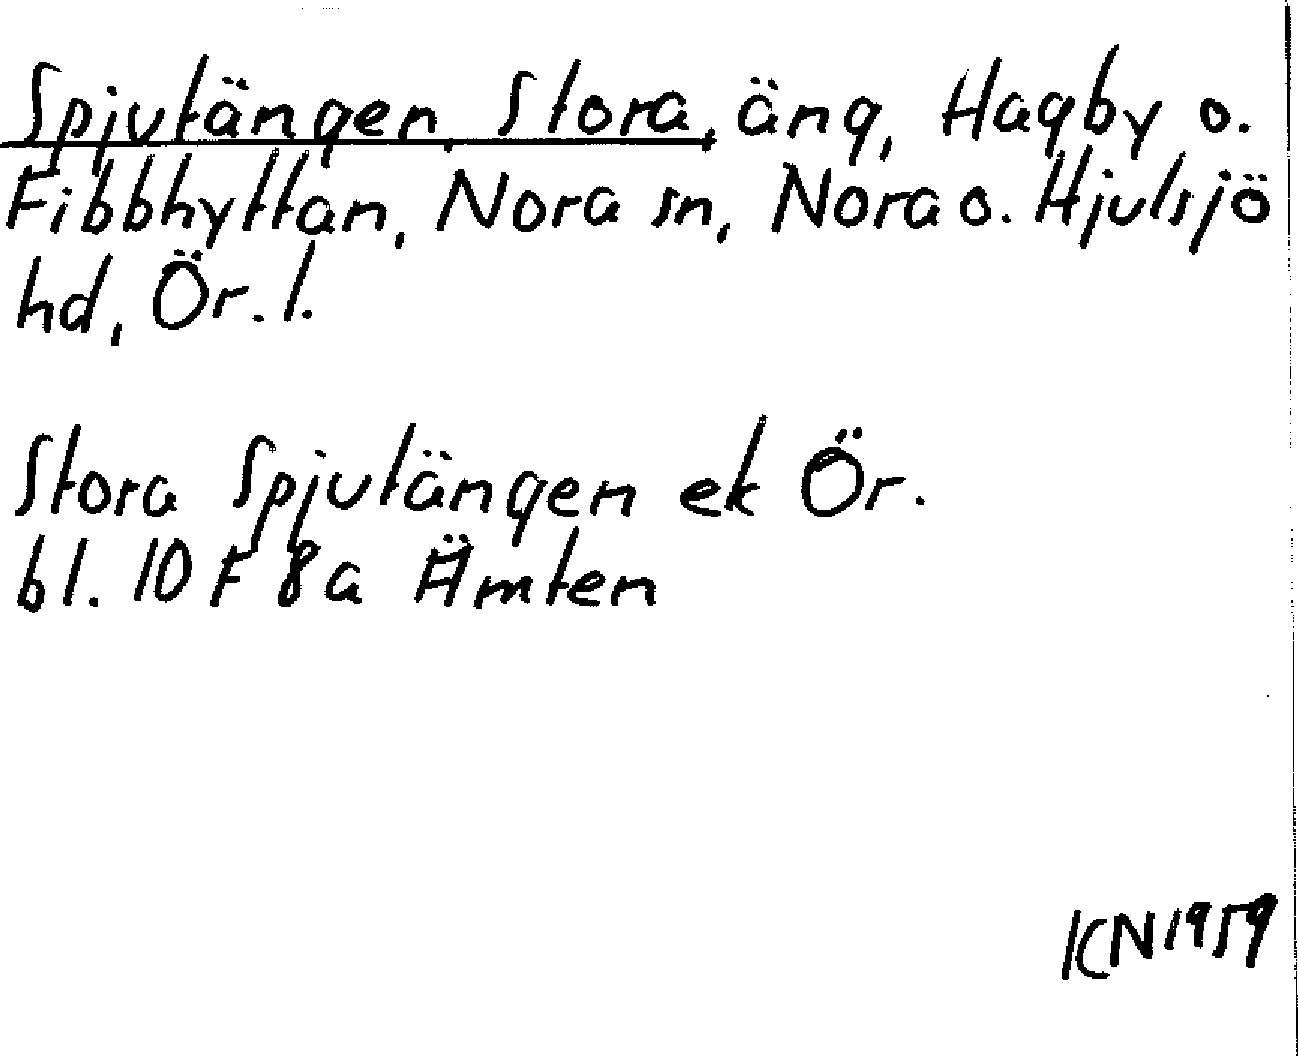 Spjutängen, Stora, äng, Hagby o.
Fibbhyttan, Nora sn, Nora o. Hjulsjö
hd, Ör. l.
Stora Spjutängen ek Ör.
bl. 10 F 8a Ämten
KN 1959